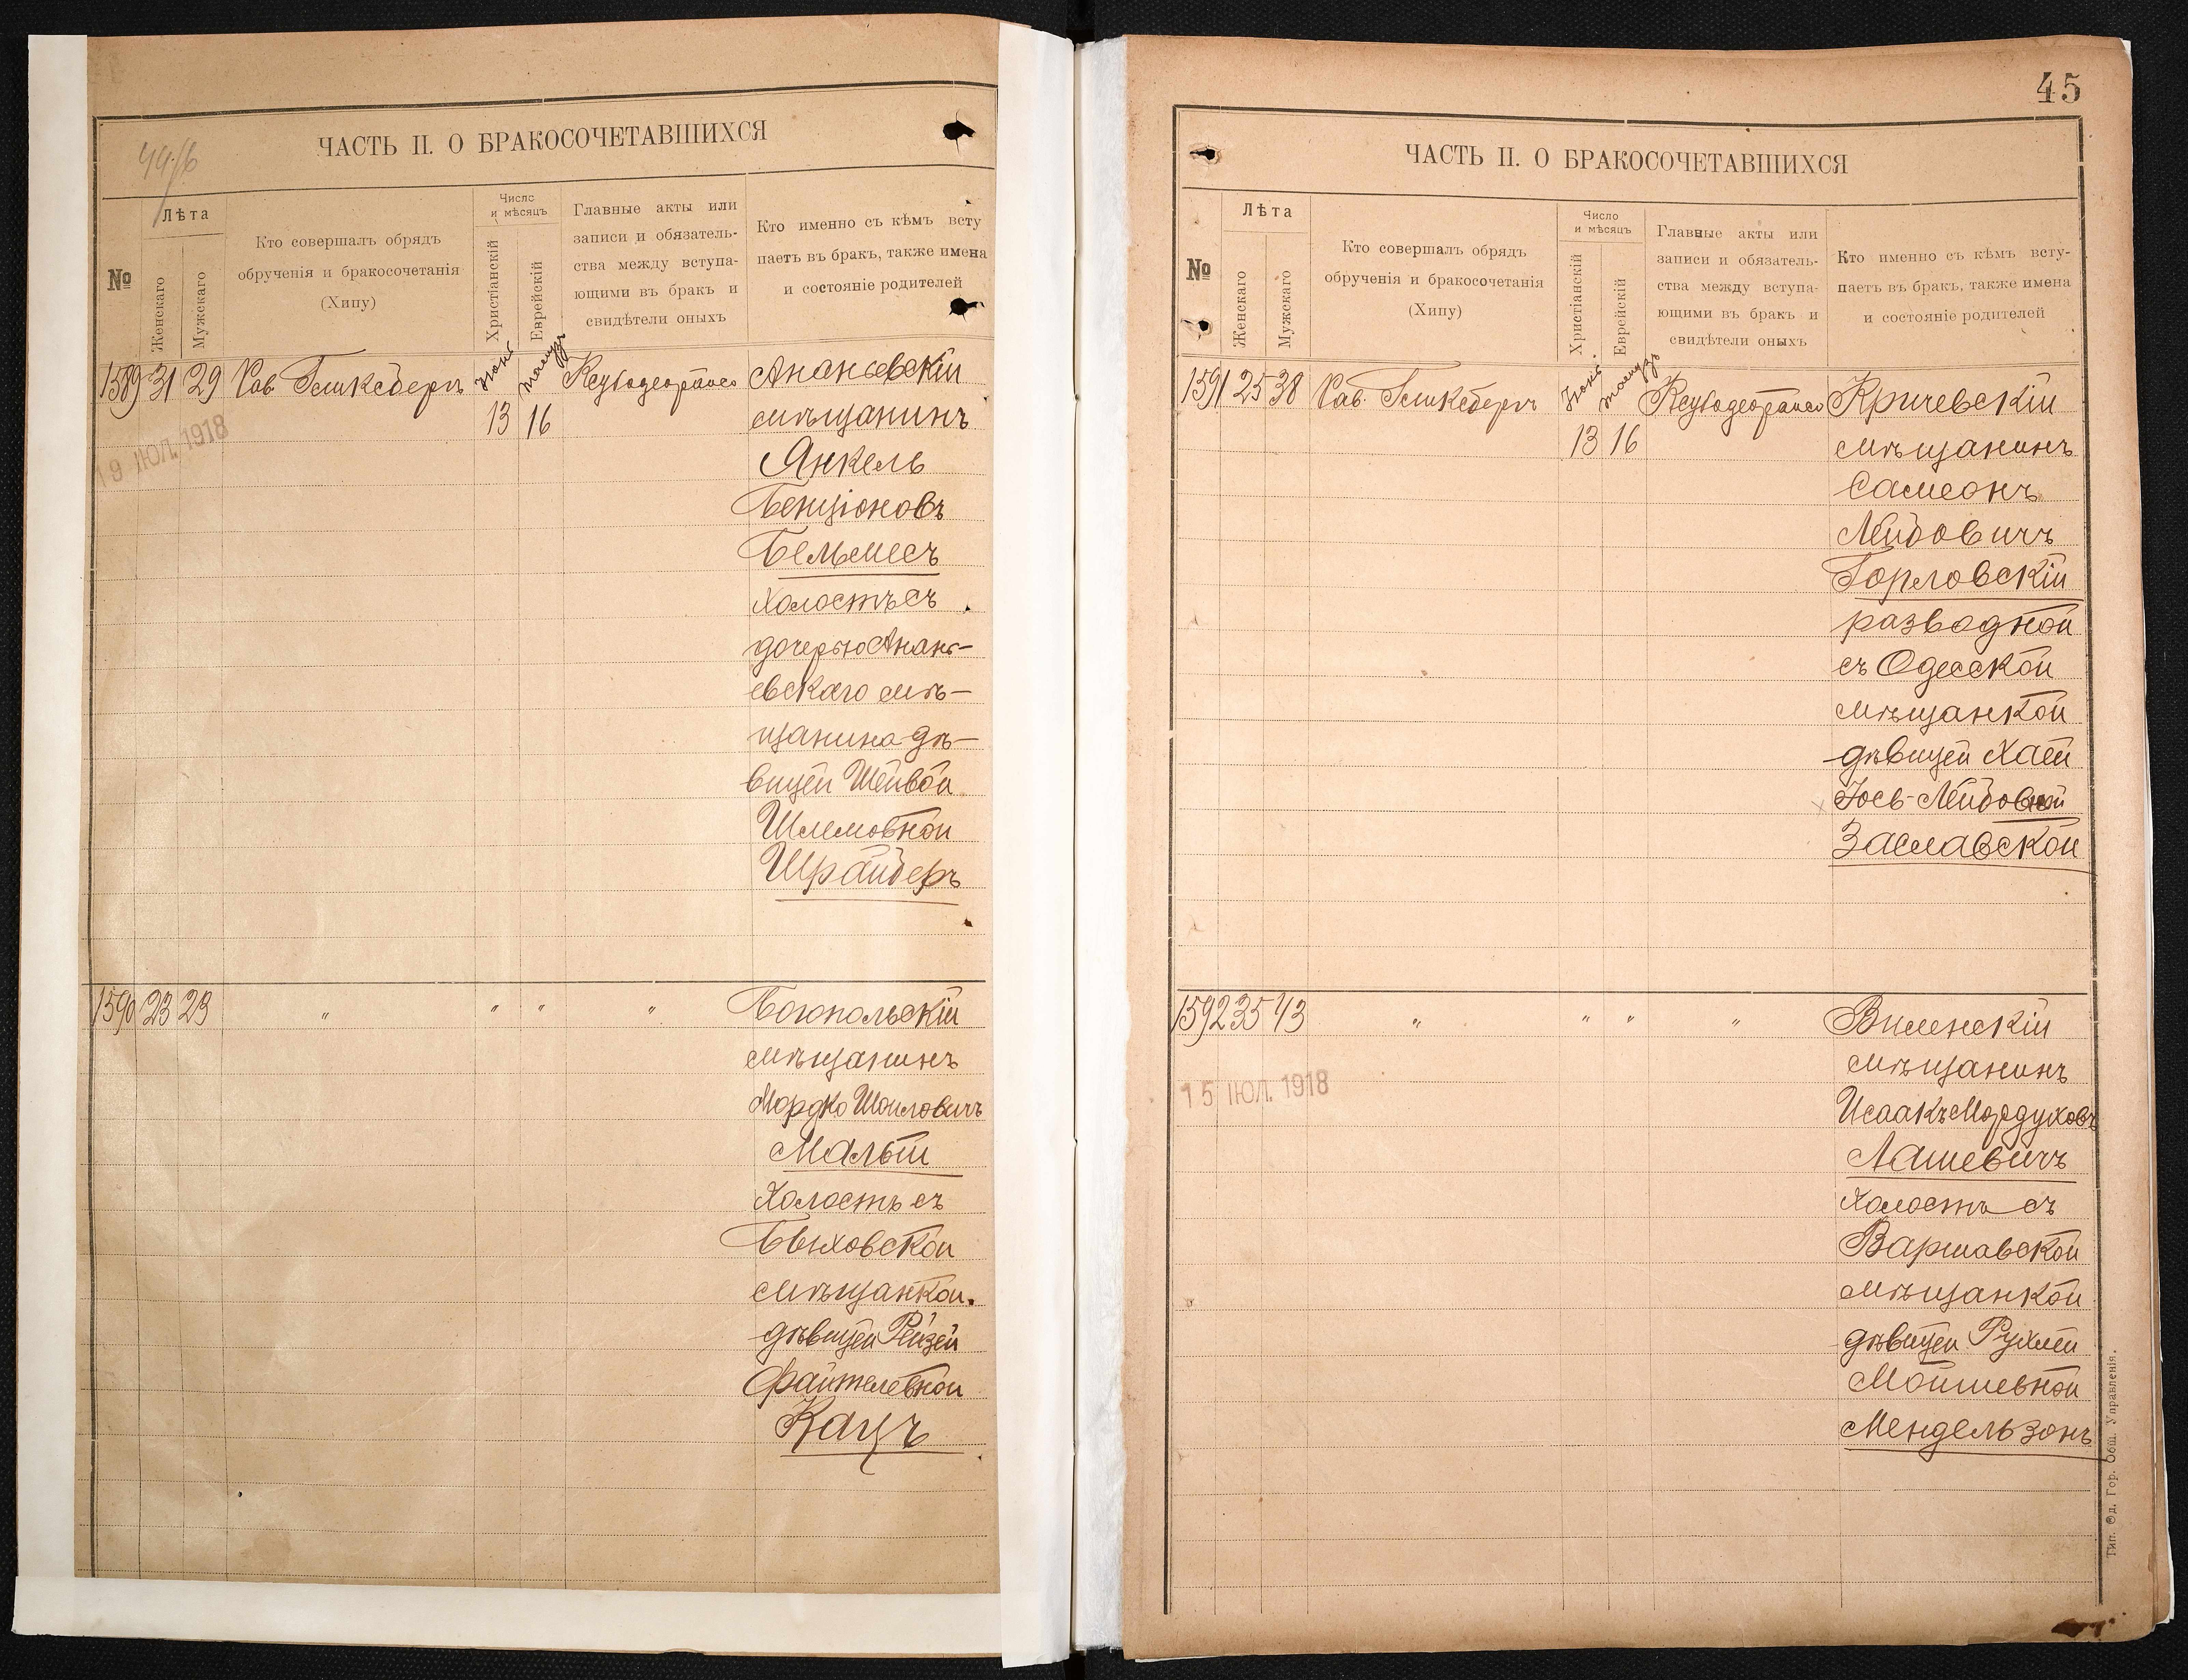 44/б
ЧАСТЬ II. О БРАКОСОЧЕТАВШИХСЯ
№
Лѣта
Женскаго
Мужскаго
Кто совершалъ обрядъ
обрученія и бракосочетанія
(Хипу)
Число
и мѣсяцъ
Христіанскій
Еврейскій
Главные акты или
записи и обязатель-
ства между вступа-
ющими въ бракъ и
свидѣтели оныхъ
Кто именно съ кѣмъ всту
паетъ въ бракъ, также имена
и состояніе родителей
1589 31 29 Рав. Гликсбергъ
13 16
19 ІЮЛ. 1918
Ананьевскій
мѣщанинъ
Янкель
Бенціоновъ
Бельмесъ
холостъ съ
дочерью Анань-
евскаго мѣ-
щанина дѣ-
вицей Шейвой
Шлемовной
Шрайберъ
1590 23 23 " " " "
Богопольскій
мѣщанинъ
Мордко Шоиловичъ
Малый
Холостъ съ
Быховской
мѣщанкой
дѣвицей Рейзей
Файтелевной
Кацъ
45
ЧАСТЬ II. О БРАКОСОЧЕТАВШИХСЯ
№
Лѣта
Женскаго
Мужскаго
Кто совершалъ обрядъ
обрученія и бракосочетанія
(Хипу)
Число
и мѣсяцъ
Христіанскій
Еврейскій
Главные акты или
записи и обязатель-
ства между вступа-
ющими въ бракъ и
свидѣтели оныхъ
Кто именно съ кѣмъ всту-
паетъ въ бракъ, также имена
и состояніе родителей
1591 25 38 Рав. Гликсбергъ
13 16
Кричевскій
мѣщанинъ
Самсонъ
Лейбовичъ
Горловскій
разводной
съ Одесской
мѣщанкой
дѣвицей Хаей
Іось-Лейбовной
Заславской
1592 35 43 " " " "
15 ІЮЛ. 1918
Виленскій
мѣщанинъ
Исаакъ Мордуховъ
Лашевичъ
холостъ съ
Варшавской
мѣщанкой
дѣвицей Рухлей
Мойшевной
Мендельзонъ
Тип. Од. Гор. Общ. Управленія.